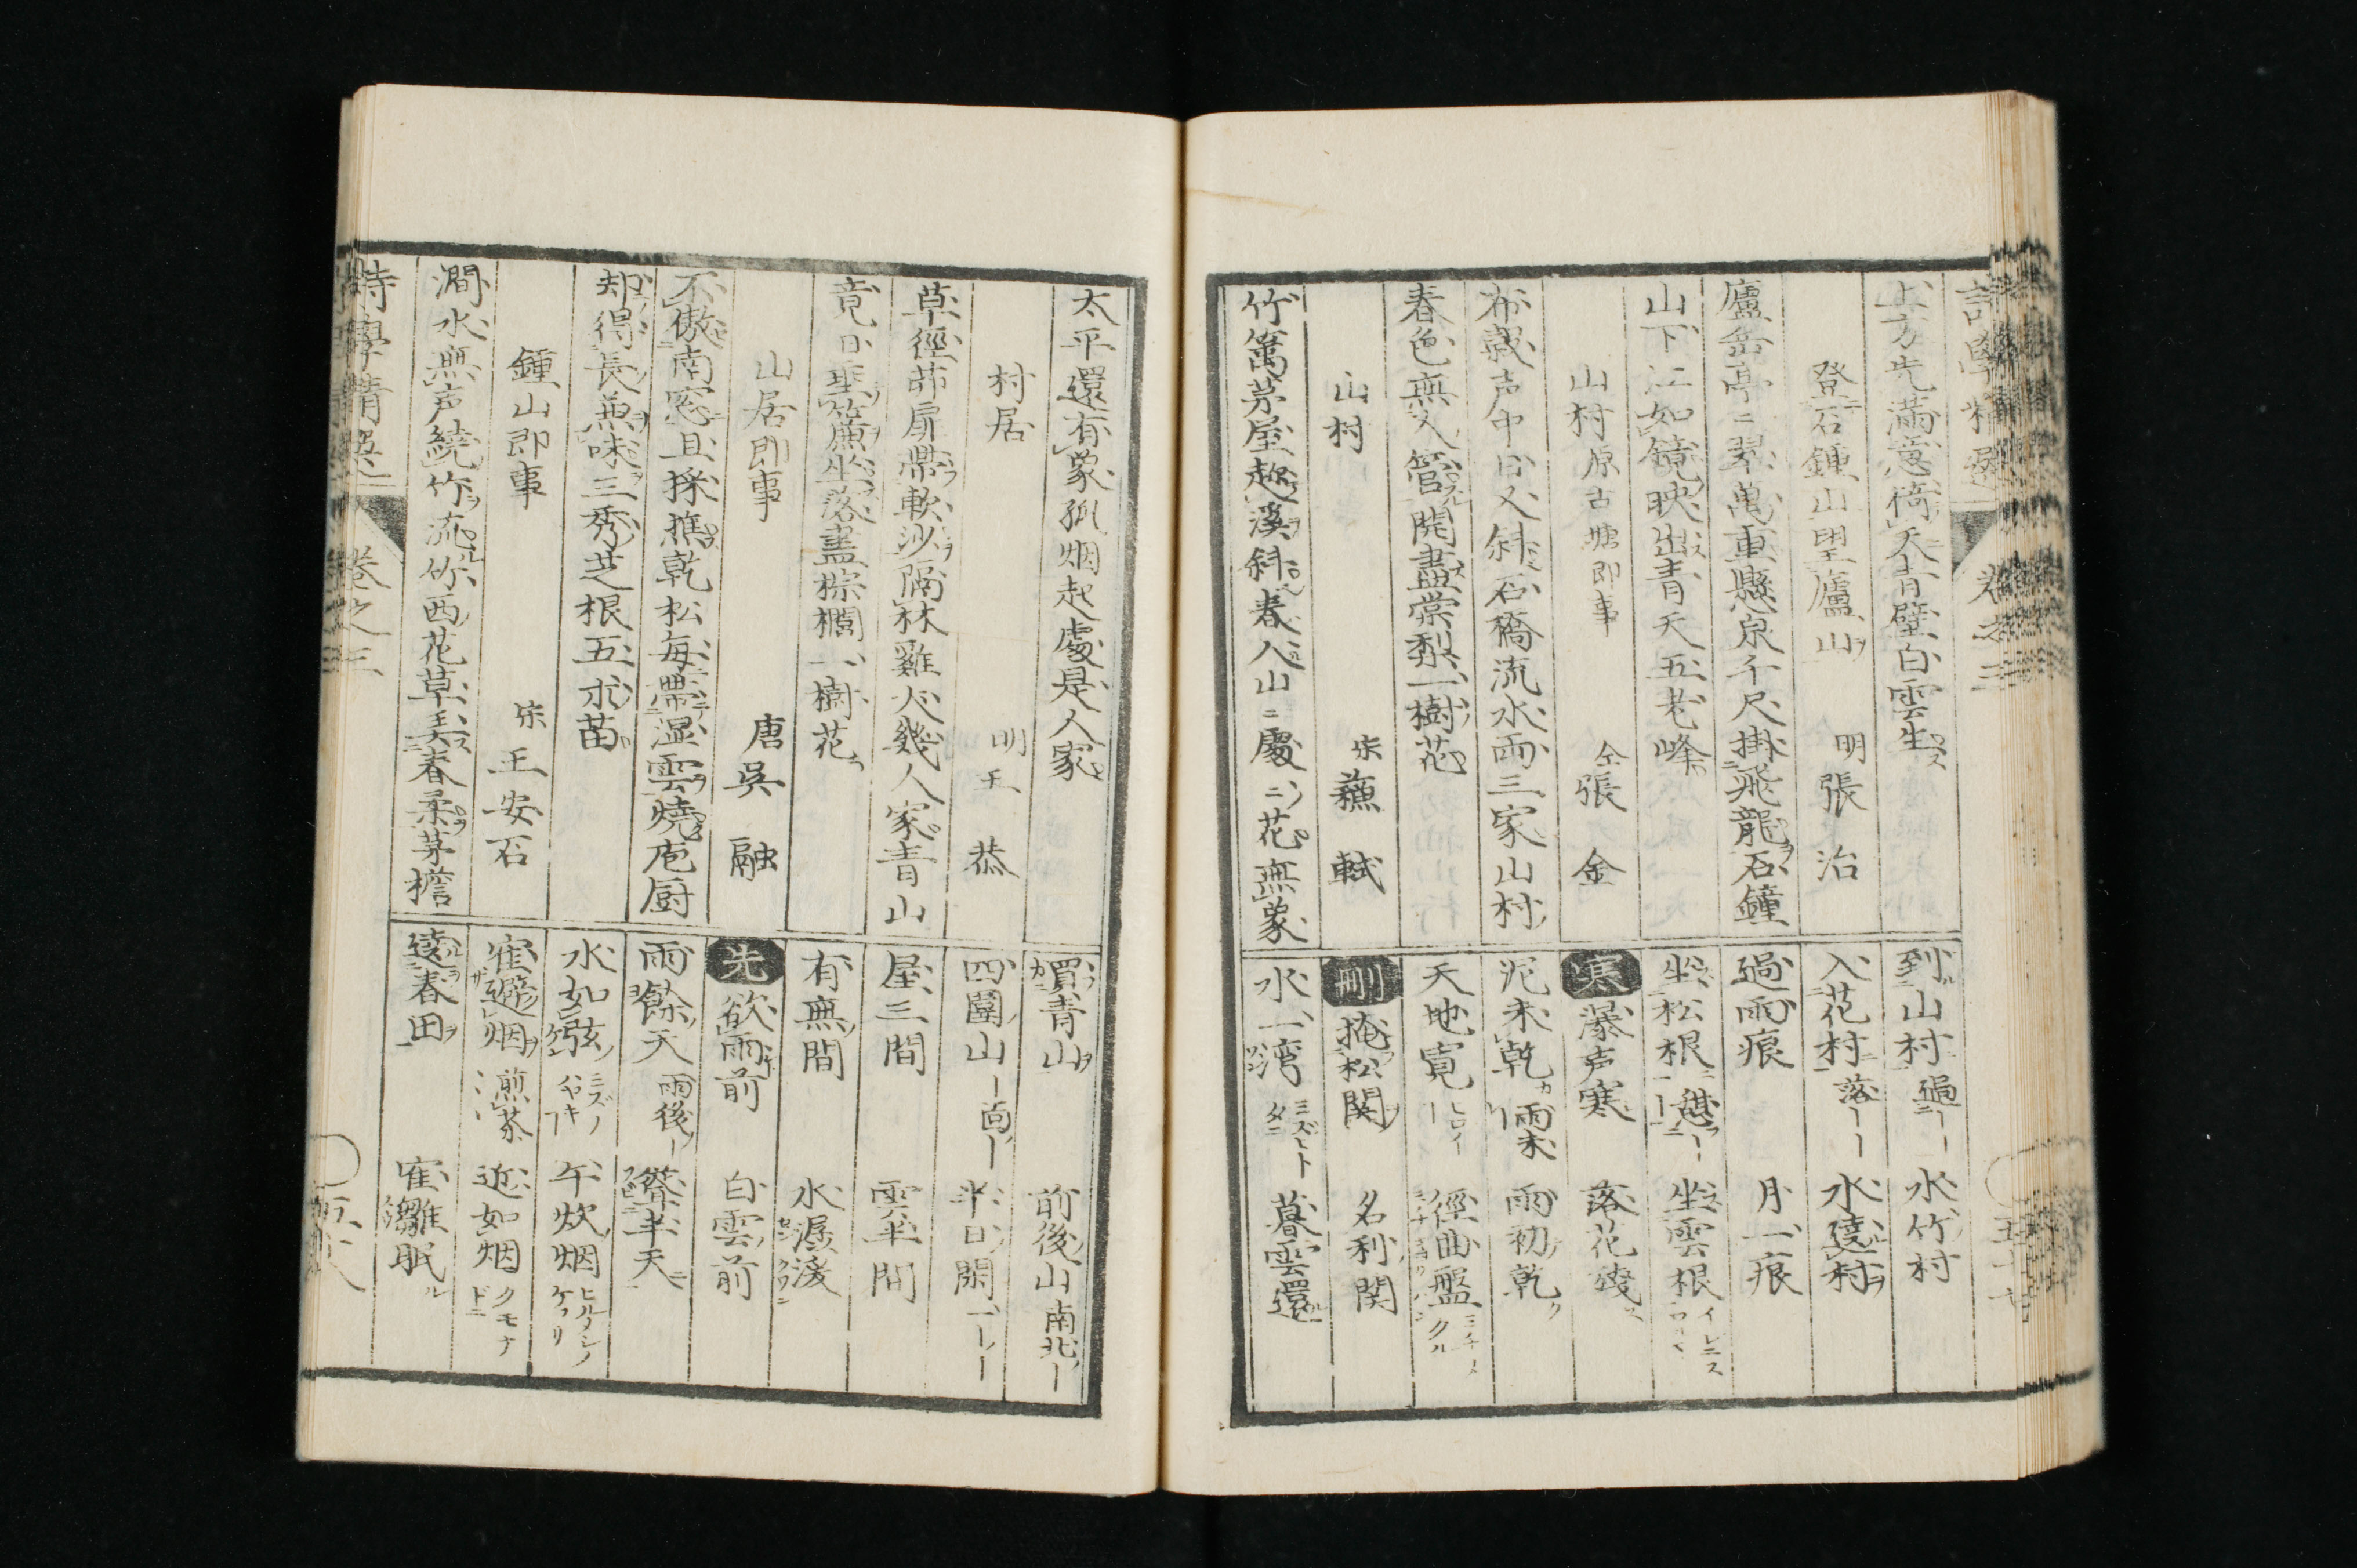 詩學精選 卷之三 五十七
上方先滿意倚天青壁白雲生
登石鍾山望廬山 明 張治
廬岳亭ニ翠萬重懸泉千尺掛飛龍石鐘
山下江如鏡映出青天五老峰
山村原古塘即事 金 張金
布穀声中日又斜石橋流水両三家山村
春色無人管開盡棠梨一樹花
山村 宋 蘇軾
竹篱茅屋趂溪斜春入山ニ處ニ花無象
到山村 過ーー 水竹村
入花村 落ーー 水遶村
過雨痕 月一痕
坐松根 憇ーー 坐雲根
寒 瀑声寒 落花殘
泥未乾 雨未ー 雨初乾
天地寛 ヒロイ 徑曲盤
刪 掩松関 名利関
水一湾 暮雲還
太平還有象孤烟起處是人家
村居 明 王恭
草徑茆扉帶軟沙隔林雞犬幾人家青山
竟日垂簾坐落盡棕櫚一樹花
山居即事 唐 吳融
不傲南窓且採樵乾松每帶湿雲燒庖厨
却得長兼味三秀芝根五朮苗
鍾山即事 宋 王安石
澗水無声繞竹流竹西花草弄春柔茅檐
詩學精選 卷之三 五十八
買青山 前後山 南北ー
四圍山 ー面ー 半日閑
屋三間 雲半間
有無間 水潺湲
先 欲雨前 白雲前
雨餘天 雨後ー 聳半天
水如弦 午炊烟
隺避烟 煎茶 近如烟
遶春田 隺雛眠